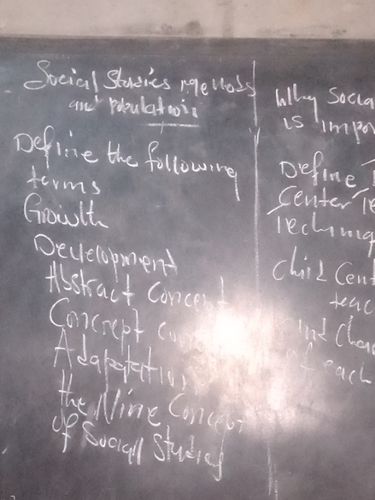 Social Studies methods
and Population
Define the following
terms
Growth
Development
Abstract Concept
Concrept
Adaptation
the Nine Concep
of Social Studies
Why Socia
is impor
Define
Center Te
Techniq
Child Cent
teac
of each